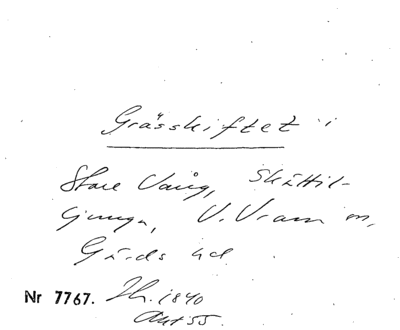 Grässkiftet i
Store Vång, Skättil-
ljunga, V. Vram m,
Gärds hd.
Nr 7767. Th. 1840
Akt 55